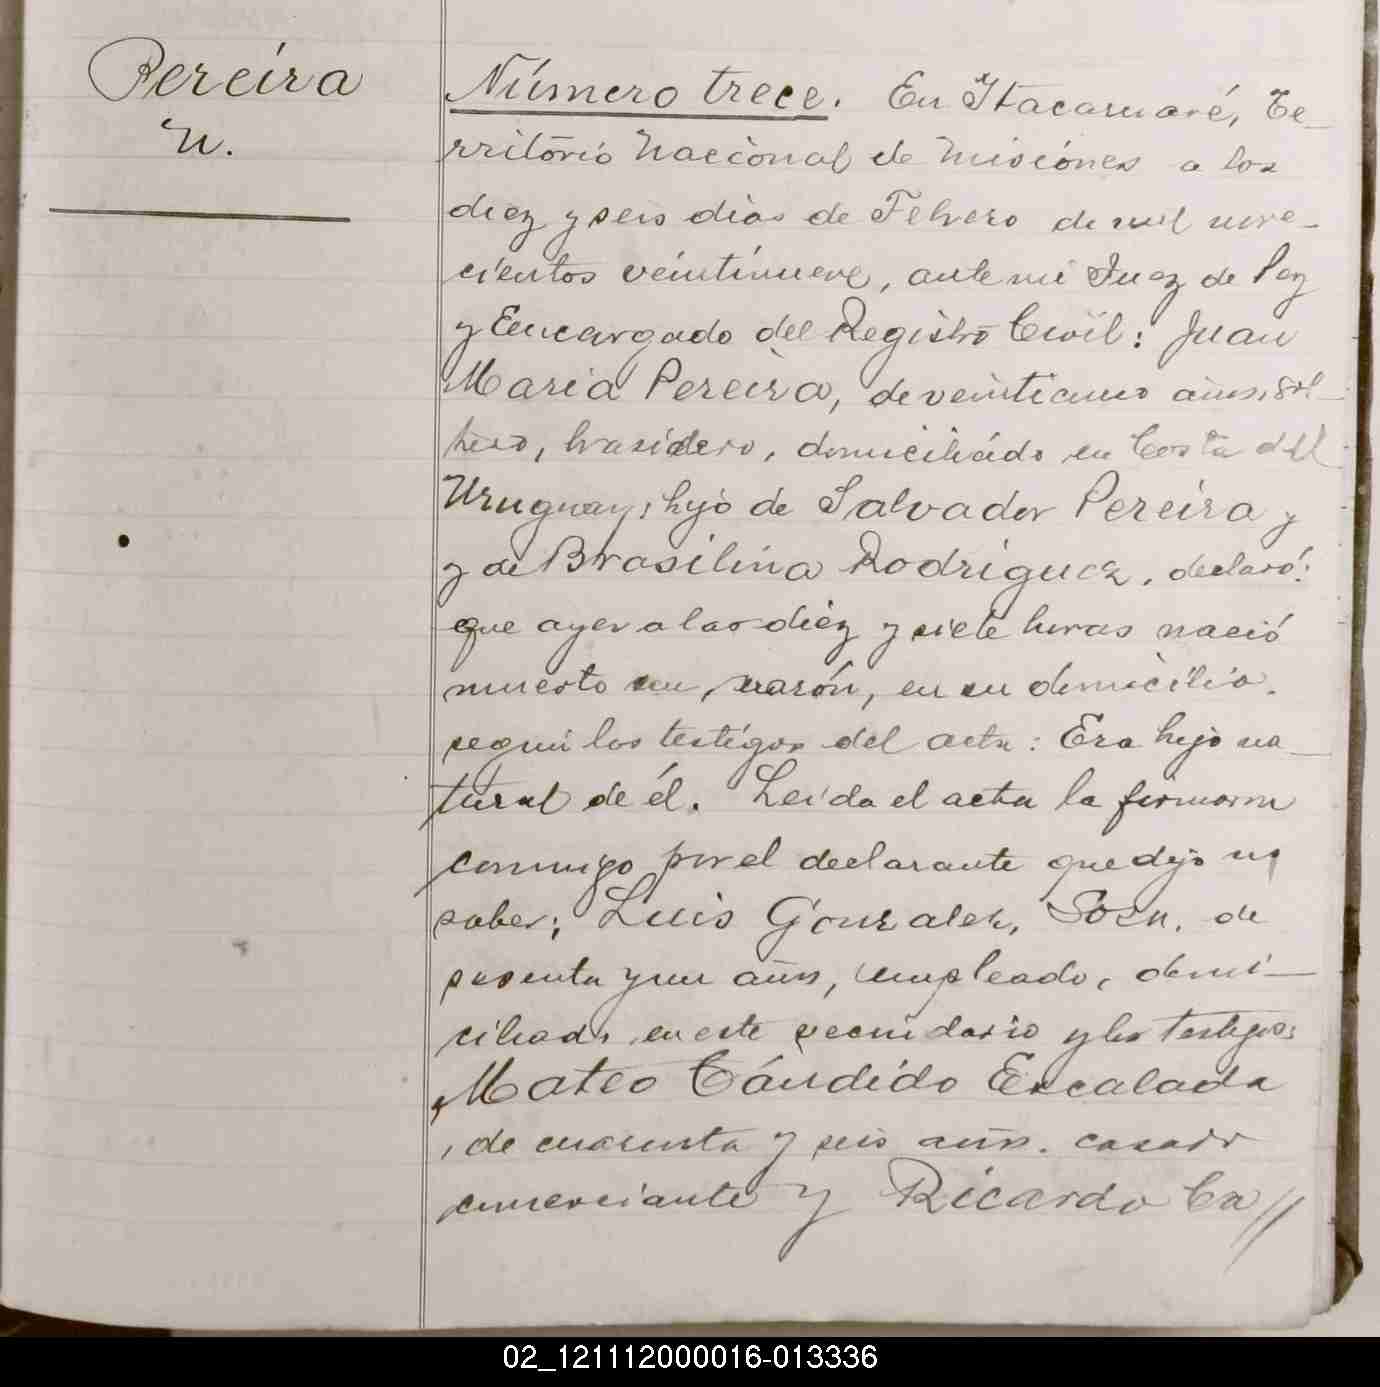 Pereira
N.
Número trece. En Itacaruaré, Te-
rritório Nacional de Misiónes a los
diez y seis dias de Febrero de mil nove-
cientos veintinueve, ante mi Juez de Paz
y Encargado del Registro Civil: Juan
Maria Pereira, de veinticinco años, sol-
tero, brasidero, domiciliádo en Costa del
Uruguay, hijo de Salvador Pereira y
y de Brasilina Rodriguez, declaró:
que ayer a las diéz y siete horas nació
muerto un varón, en su domicilio.
según los testigos del acta: Era hijo na-
tural de él. Leída el acta la firmaron
conmigo por el declarante que dijo no
saber; Luis Gonzalez, Sosa, de
sesenta y un años, empleado, domi-
ciliado, en este vecindario y los testigos:
Mateo Cándido Escalada
, de cuarenta y seis años. casado
comerciante y Ricardo Ca//
02_121112000016-013336